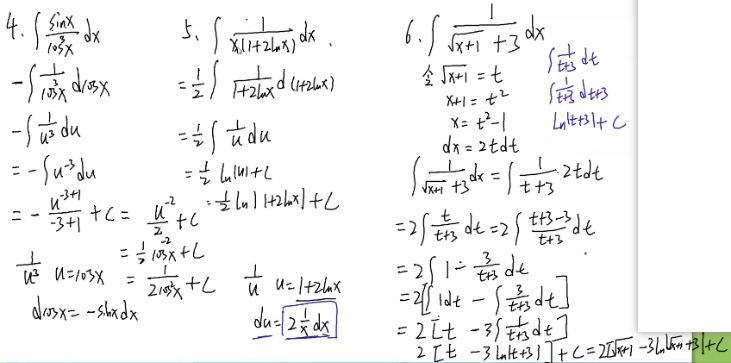 4. ∫ sinx/cos³x dx
-∫ 1/cos³x dcosx
-∫ 1/u³ du
= -∫u⁻³du
= - u⁻³⁺¹/-3+1 + C = u⁻²/2 + C
= 1/2 cos⁻²x + C
= 1/2cos²x + C
1/u³ u=cosx
dcosx = -sinxdx
5. ∫ 1/x(1+2lnx) dx
= 1/2 ∫ 1/1+2lnx d(1+2lnx)
= 1/2 ∫ 1/u du
= 1/2 ln|u| + C
= 1/2 ln|1+2lnx| + C
1/u u=1+2lnx
du = 2 1/x dx
6. ∫ 1/√x+1 +3 dx
令 √x+1 = t
x+1 = t²
x = t²-1
dx = 2tdt
∫ 1/t+3 dt
∫ 1/t+3 dt+3
ln|t+3| + C
∫ 1/√x+1 +3 dx = ∫ 1/t+3 · 2tdt
= 2∫ t/t+3 dt = 2∫ t+3-3/t+3 dt
= 2∫ 1 - 3/t+3 dt
= 2[∫1dt - ∫ 3/t+3 dt]
= 2[t - 3∫ 1/t+3 dt]
2[t - 3ln|t+3|] + C = 2[√x+1 - 3ln|√x+1 +3|] + C